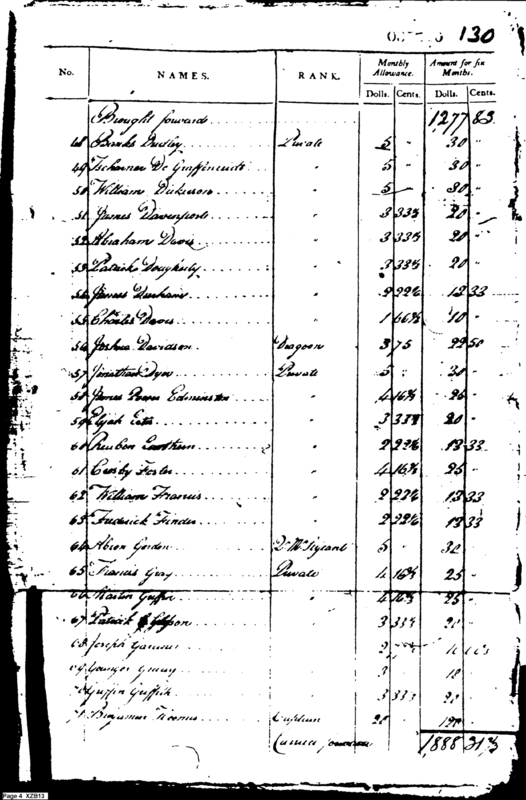 130
No. NAMES. RANK. Monthly Allowance. Amount for six Months.
Dolls. Cents. Dolls. Cents.
Brought forward 1277 83
48 Banks Dudley Private 5 " 30 "
49 Tscharner De Graffenreidt " 5 " 30 "
50 William Dickerson " 5 " 30 "
51 James Davenport " 3 33⅓ 20 "
52 Abraham Davis " 3 33⅓ 20 "
53 Patrick Dougherty " 3 33⅓ 20 "
54 James Durham " 2 22⅔ 13 33
55 Charles Davis " 1 66⅔ 10 "
56 Joshua Davidson Dragoon 3 75 22 50
57 Jonathan Dyer Private 5 " 30 "
58 James Edmiston " 4 16⅔ 25 "
59 Elijah Estes " 3 33⅓ 20 "
60 Reuben " 2 22⅔ 13 33
61 Crosby Foster " 4 16⅔ 25 "
62 William Francis " 2 22⅔ 13 33
63 Frederick Finder " 2 22⅔ 13 33
64 Gordon 5 " 30 "
65 Francis Gray Private 4 16⅔ 25 "
66 Martin " 4 16⅔ 25 "
67 Patrick Gibson " 3 33⅓ 20 "
68 Joseph
3 18
70 Griffin Griffith 3 33⅓ 20
71 Benjamin Captain 20 120
Carried forward 1888 31
Page 4 XZB13